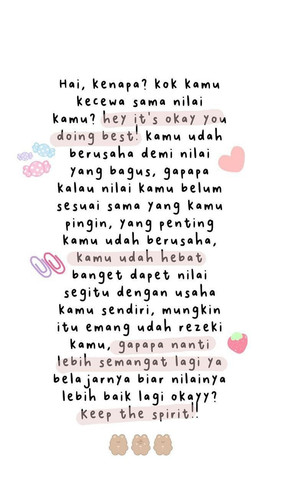 Hai, kenapa? kok kamu
kecewa sama nilai
kamu? hey it's okay you
doing best! kamu udah
berusaha demi nilai
yang bagus, gapapa
kalau nilai kamu belum
sesuai sama yang kamu
pingin, yang penting
kamu udah berusaha,
kamu udah hebat
banget dapet nilai
segitu dengan usaha
kamu sendiri, mungkin
itu emang udah rezeki
kamu, gapapa nanti
lebih semangat lagi ya
belajarnya biar nilainya
lebih baik lagi okayy?
keep the spirit!!